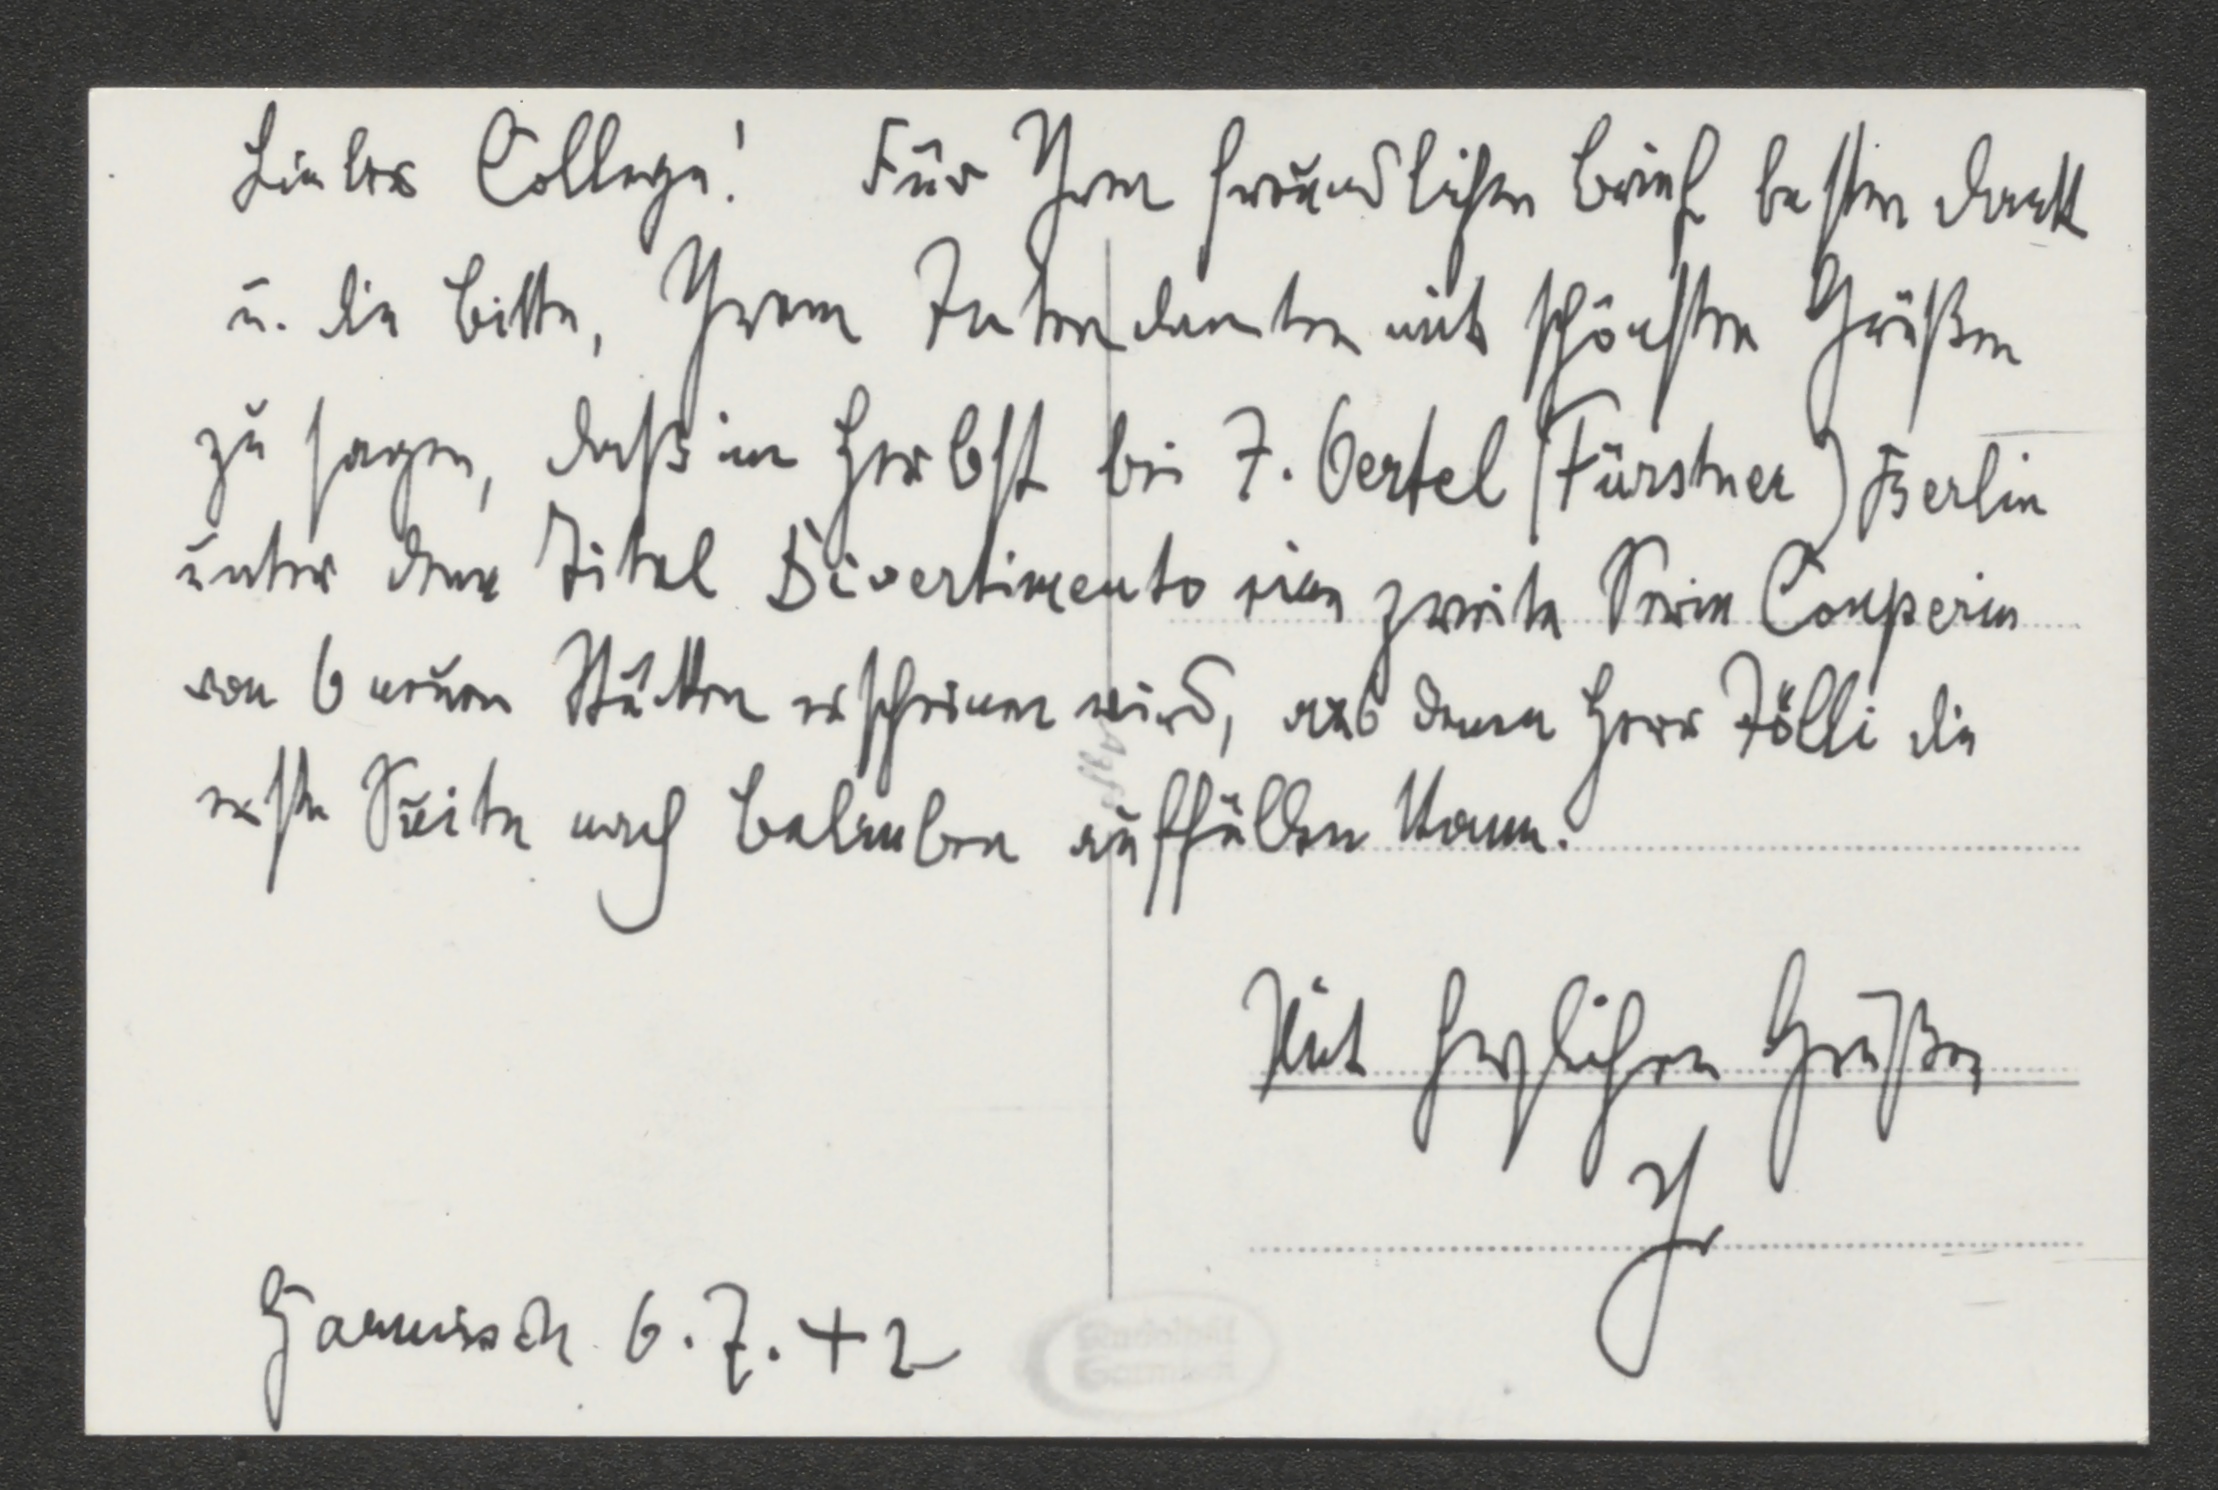 Lieber College! Für Ihren freundlichen Brief besten Dank
u. die Bitte, Ihrem Intendanten mit schönsten Grüßen
zu sagen, daß im Herbst bei J. Oertel (Fürstner) Berlin
unter dem Titel Divertimento eine zweite Serie Couperin
von 6 neuen Stükken erscheinen wird, aus denen Herr Jölli die
erste Suite nach Belieben auffüllen kann.
Mit herzlichen Grüßen
Ihr
Garmisch 6.7.42